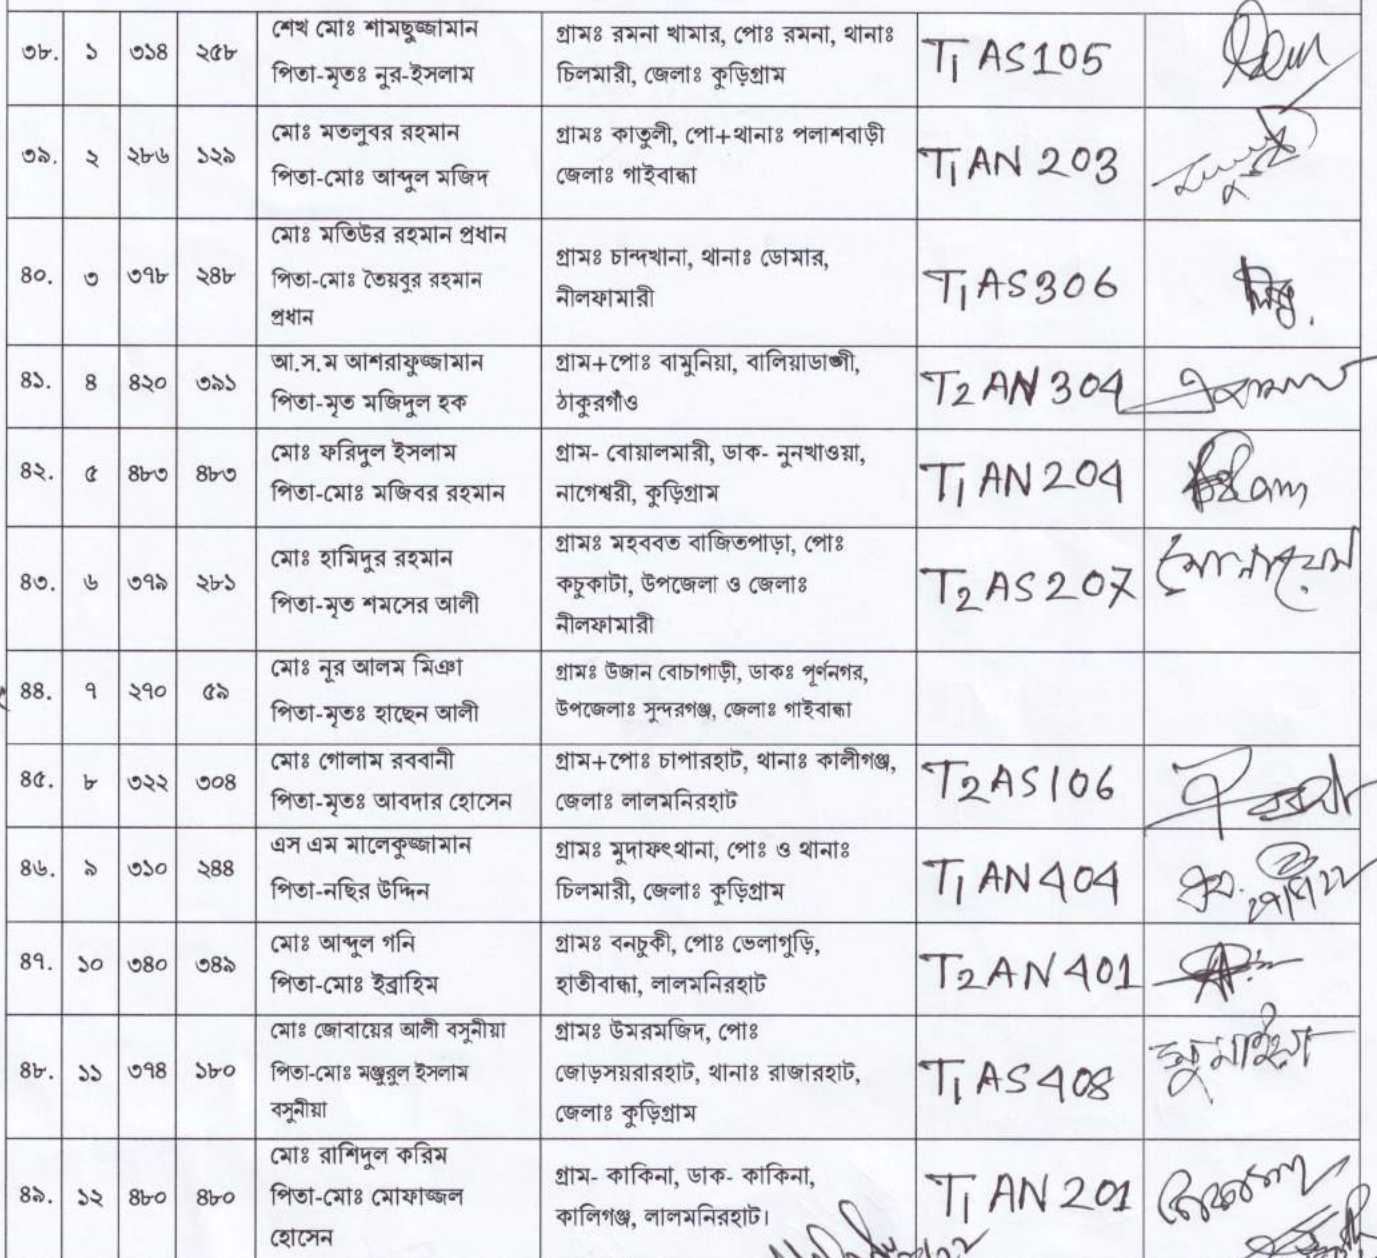 ৩৮. ১ ৩১৪ ২৫৮ শেখ মোঃ শামছুজ্জামান
পিতা-মৃতঃ নুর-ইসলাম
গ্রামঃ রমনা খামার, পোঃ রমনা, থানাঃ
চিলমারী, জেলাঃ কুড়িগ্রাম
T1 AS105
৩৯. ২ ২৮৬ ১২৯ মোঃ মতলুবর রহমান
পিতা-মোঃ আব্দুল মজিদ
গ্রামঃ কাতুলী, পো+থানাঃ পলাশবাড়ী
জেলাঃ গাইবান্ধা
T1 AN 203
৪০. ৩ ৩৭৮ ২৪৮ মোঃ মতিউর রহমান প্রধান
পিতা-মোঃ তৈয়বুর রহমান
প্রধান
গ্রামঃ চান্দখানা, থানাঃ ডোমার,
নীলফামারী
T1 AS306
৪১. ৪ ৪২০ ৩৯১ আ.স.ম আশরাফুজ্জামান
পিতা-মৃত মজিদুল হক
গ্রাম+পোঃ বামুনিয়া, বালিয়াডাঙ্গী,
ঠাকুরগাঁও
T2 AN 304
৪২. ৫ ৪৮৩ ৪৮৩ মোঃ ফরিদুল ইসলাম
পিতা-মোঃ মজিবর রহমান
গ্রাম- বোয়ালমারী, ডাক- নুনখাওয়া,
নাগেশ্বরী, কুড়িগ্রাম
T1 AN 204
৪৩. ৬ ৩৭৯ ২৮১ মোঃ হামিদুর রহমান
পিতা-মৃত শমসের আলী
গ্রামঃ মহববত বাজিতপাড়া, পোঃ
কচুকাটা, উপজেলা ও জেলাঃ
নীলফামারী
T2 AS 207
৪৪. ৭ ২৭০ ৫৯ মোঃ নূর আলম মিঞা
পিতা-মৃতঃ হাছেন আলী
গ্রামঃ উজান বোচাগাড়ী, ডাকঃ পূর্ণনগর,
উপজেলাঃ সুন্দরগঞ্জ, জেলাঃ গাইবান্ধা
৪৫. ৮ ৩২২ ৩০৪ মোঃ গোলাম রববানী
পিতা-মৃতঃ আবদার হোসেন
গ্রাম+পোঃ চাপারহাট, থানাঃ কালীগঞ্জ,
জেলাঃ লালমনিরহাট
T2 AS106
৪৬. ৯ ৩১০ ২৪৪ এস এম মালেকুজ্জামান
পিতা-নছির উদ্দিন
গ্রামঃ মুদাফৎথানা, পোঃ ও থানাঃ
চিলমারী, জেলাঃ কুড়িগ্রাম
T1 AN 404
৪৭. ১০ ৩৪০ ৩৪৯ মোঃ আব্দুল গনি
পিতা-মোঃ ইব্রাহিম
গ্রামঃ বনচুকী, পোঃ ভেলাগুড়ি,
হাতীবান্ধা, লালমনিরহাট
T2 AN 401
৪৮. ১১ ৩৭৪ ১৮০ মোঃ জোবায়ের আলী বসুনীয়া
পিতা-মোঃ মঞ্জুরুল ইসলাম
বসুনীয়া
গ্রামঃ উমরমজিদ, পোঃ
জোড়সয়রারহাট, থানাঃ রাজারহাট,
জেলাঃ কুড়িগ্রাম
T1 AS 408
৪৯. ১২ ৪৮০ ৪৮০ মোঃ রাশিদুল করিম
পিতা-মোঃ মোফাজ্জল
হোসেন
গ্রাম- কাকিনা, ডাক- কাকিনা,
কালিগঞ্জ, লালমনিরহাট।
T1 AN 201